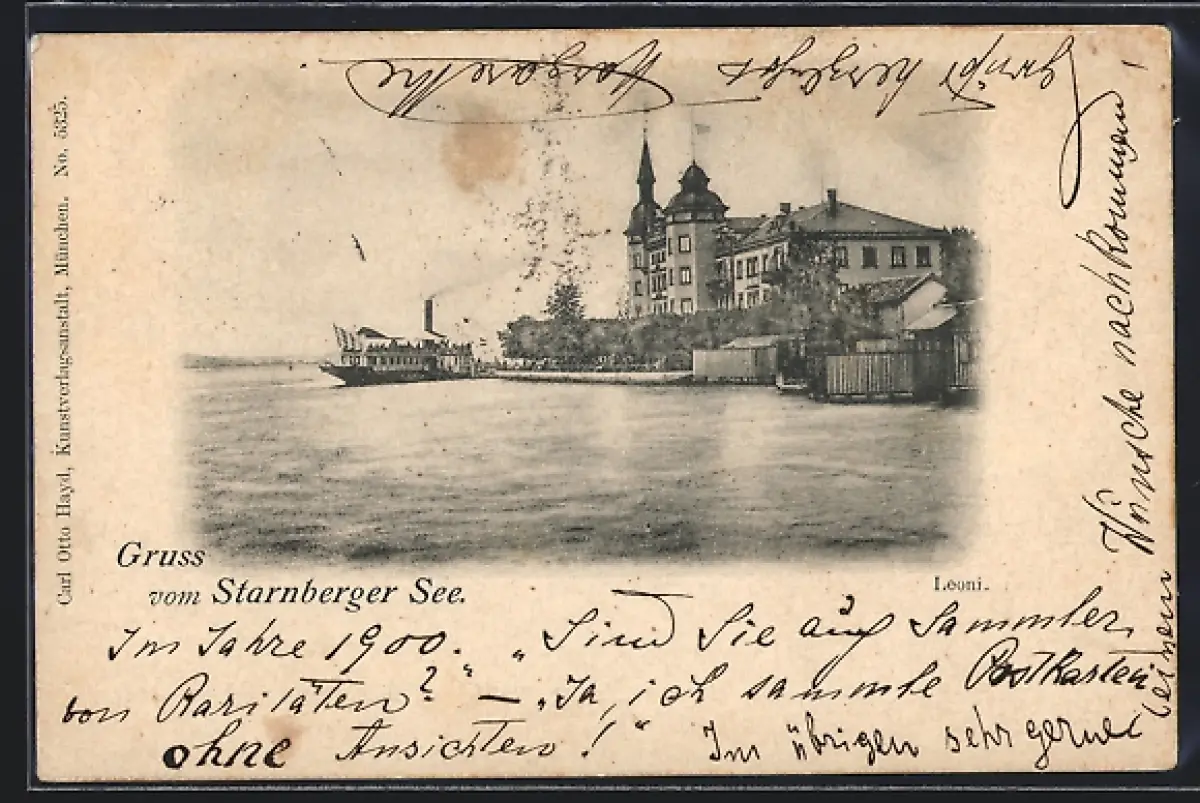 Carl Otto Hayd, Kunstverlagsanstalt, München. No. 5325.
Gruss
vom Starnberger See.
Leoni.
Im Jahre 1900. „Sind Sie auch Sammler
von Raritäten?" – „Ja, ich sammle Postkarten
ohne Ansichten!" Im übrigen sehr gerne
Wunsche nachkommen!
Gruß herzlichst
Margarethe